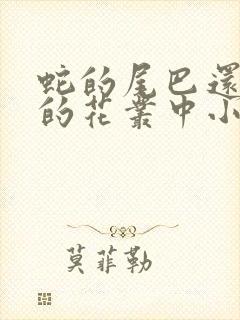 蛇的尾巴還
的花叢中小
莫菲勒